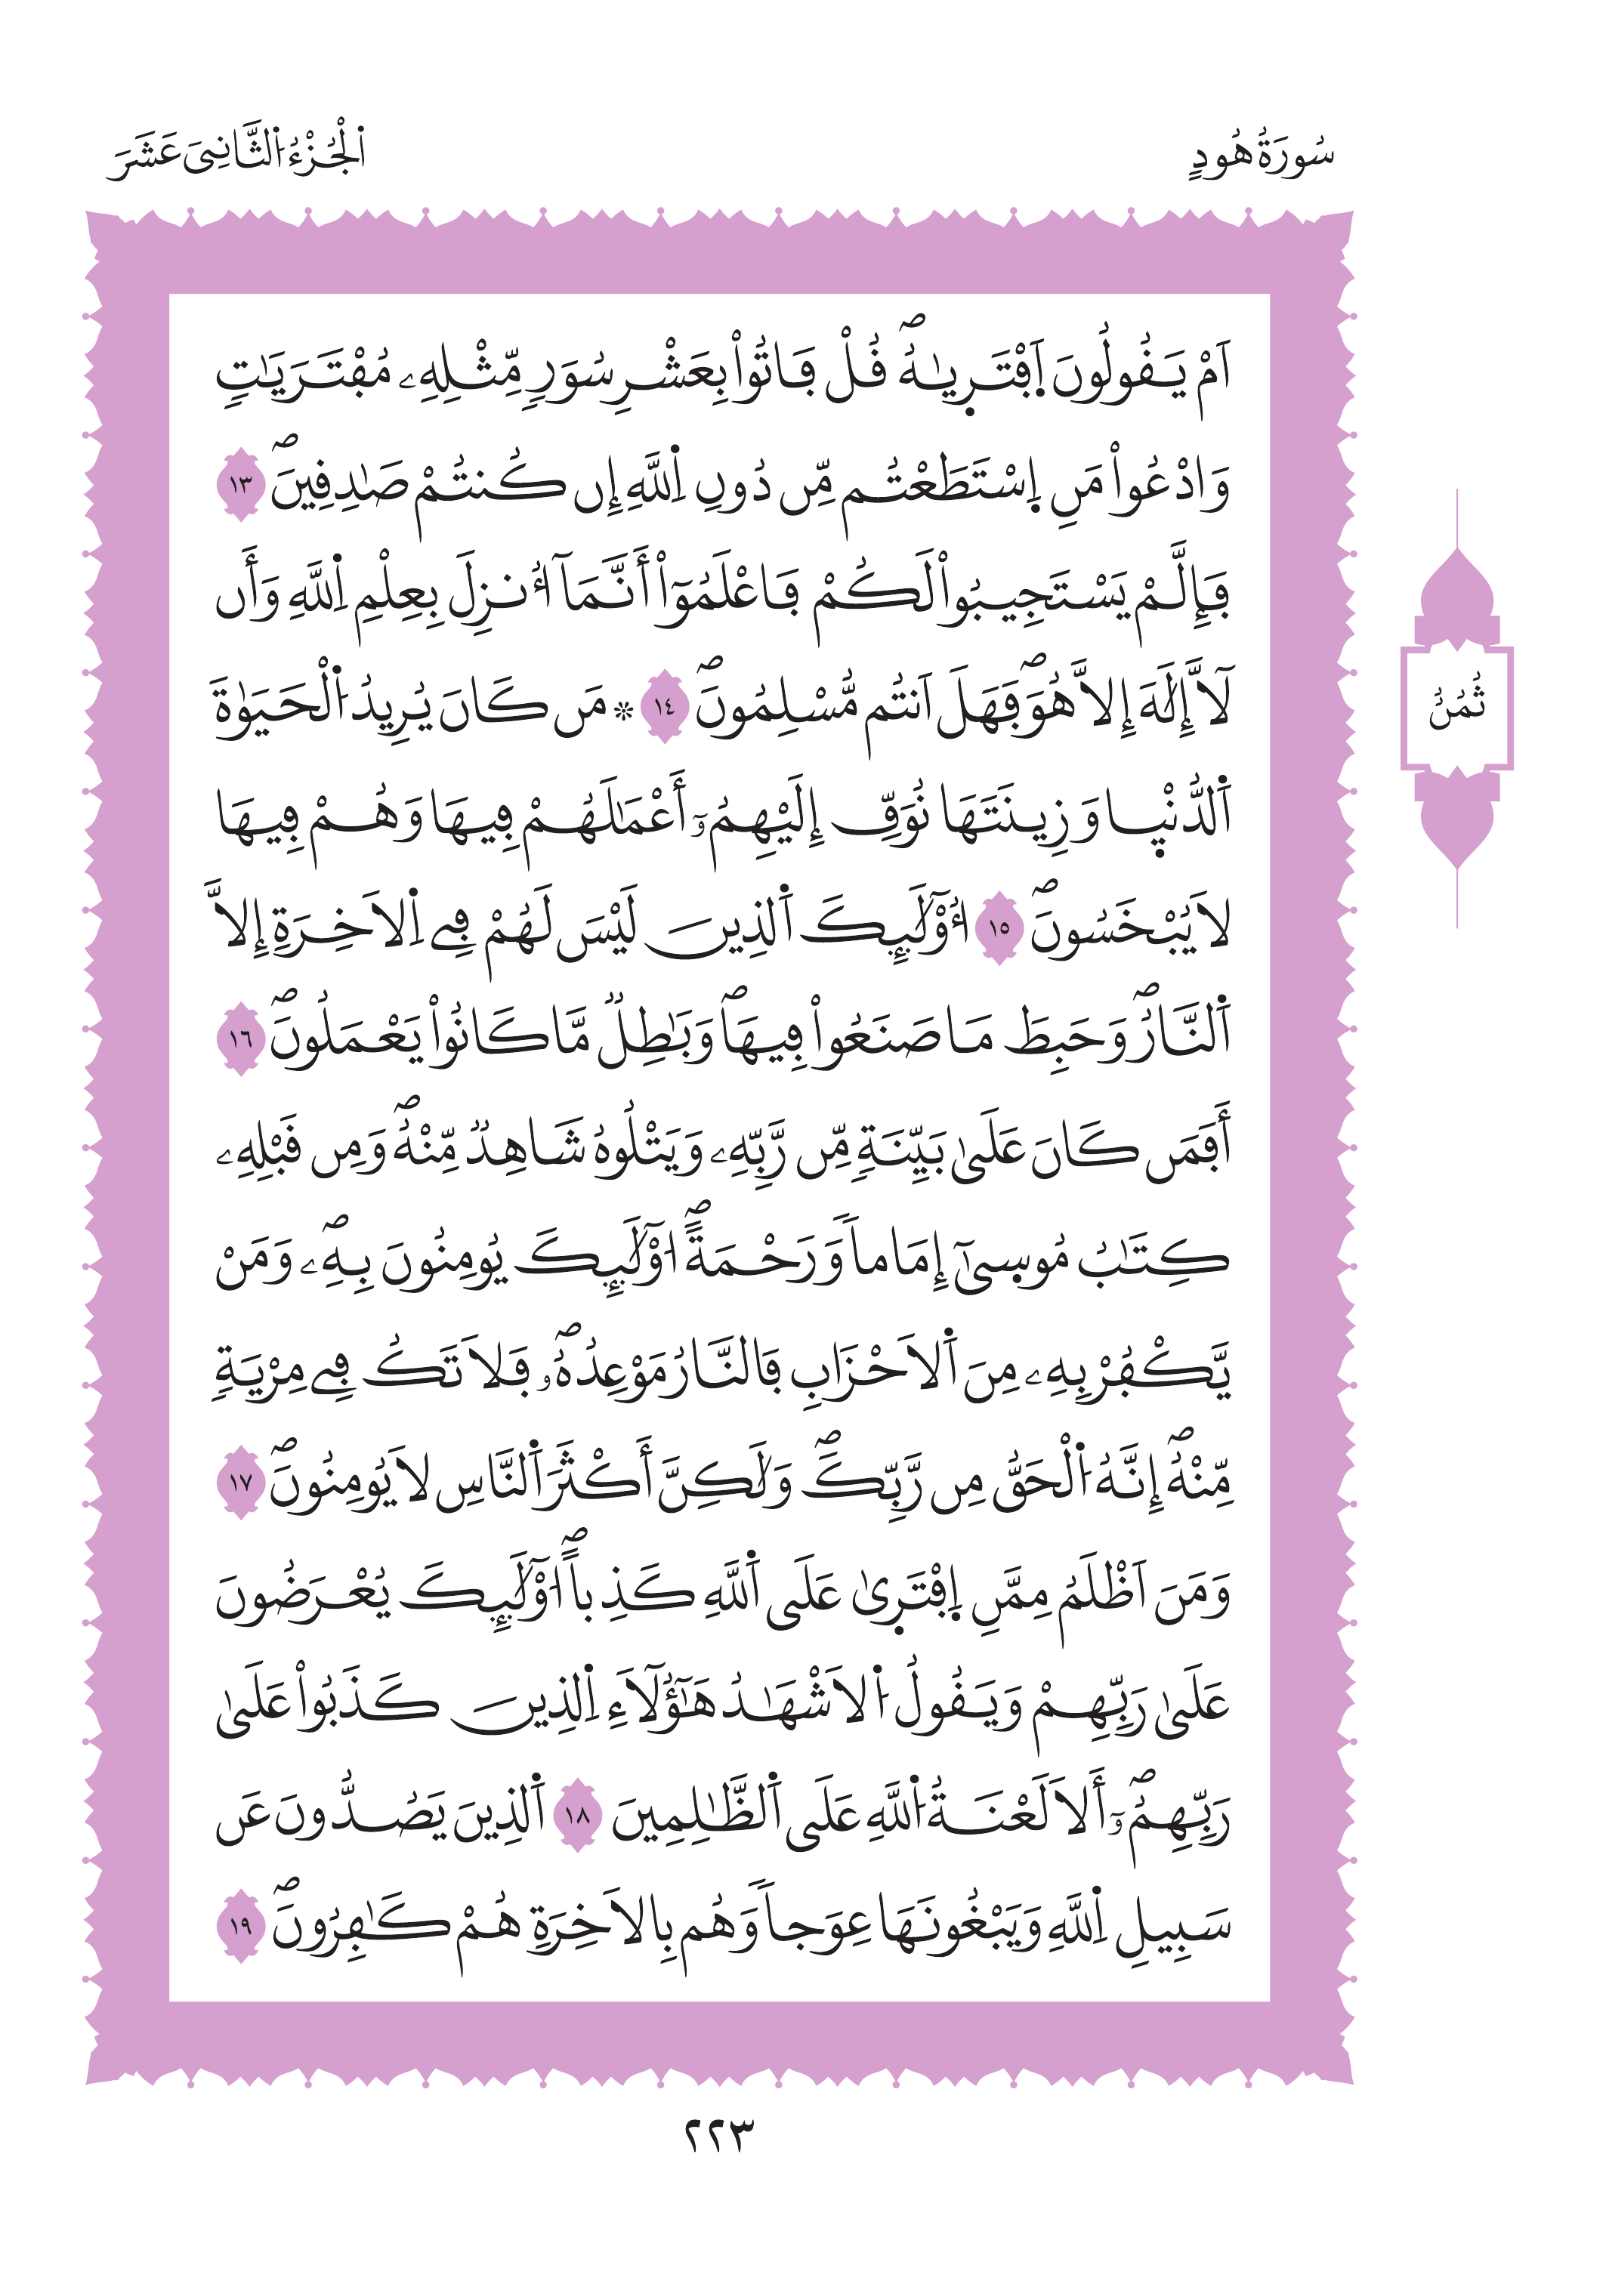 سُورَةُ هُودٍ
اَ۬لْجُزْءُ اُ۬لثَّانِيَ عَشَرَ
اَمْ يَقُولُونَ اَ۪فْتَر۪يٰهُۖ قُلْ فَاتُواْ بِعَشْرِ سُوَرٖ مِّثْلِهِۦ مُفْتَرَيَٰتٖ
وَادْعُواْ مَنِ اِ۪سْتَطَعْتُم مِّن دُونِ اِ۬للَّهِ إِن كُنتُمْ صَٰدِقِينَۖ ١٣
فَإِلَّمْ يَسْتَجِيبُواْ لَكُمْ فَاعْلَمُوٓاْ أَنَّمَآ أُنزِلَ بِعِلْمِ اِ۬للَّهِ وَأَن
لَّآ إِلَٰهَ إِلاَّ هُوَۖ فَهَلَ اَنتُم مُّسْلِمُونَۖ ١٤ ۞ مَن كَانَ يُرِيدُ اُ۬لْحَيَوٰةَ
اَ۬لدُّنْي۪ا وَزِينَتَهَا نُوَفِّ إِلَيْهِمُۥٓ أَعْمَٰلَهُمْ فِيهَا وَهُمْ فِيهَا
لاَ يُبْخَسُونَۖ ١٥ أُوْلَٰٓئِكَ اَ۬لذِينَ لَيْسَ لَهُمْ فِے اِ۬لاَخِرَةِ إِلاَّ
اَ۬لنَّارُۖ وَحَبِطَ مَا صَنَعُواْ فِيهَاۖ وَبَٰطِلٞ مَّا كَانُواْ يَعْمَلُونَۖ ١٦
أَفَمَن كَانَ عَلَىٰ بَيِّنَةٖ مِّن رَّبِّهِۦ وَيَتْلُوهُ شَاهِدٞ مِّنْهُۖ وَمِن قَبْلِهِۦ
كِتَٰبُ مُوس۪ىٰٓ إِمَاماٗ وَرَحْمَةًۖ اُوْلَٰٓئِكَ يُومِنُونَ بِهِۦۖ وَمَنْ
يَّكْفُرْ بِهِۦ مِنَ اَ۬لاَحْزَابِ فَالنَّارُ مَوْعِدُهُۥۖ فَلاَ تَكُ فِے مِرْيَةٖ
مِّنْهُۖ إِنَّهُ اُ۬لْحَقُّ مِن رَّبِّكَۖ وَلَٰكِنَّ أَكْثَرَ اَ۬لنَّاسِ لاَ يُومِنُونَۖ ١٧
وَمَنَ اَظْلَمُ مِمَّنِ اِ۪فْتَر۪ىٰ عَلَى اَ۬للَّهِ كَذِباًۖ اُوْلَٰٓئِكَ يُعْرَضُونَ
عَلَىٰ رَبِّهِمْ وَيَقُولُ اُ۬لاَشْهَٰدُ هَٰٓؤُلَآءِ اِ۬لذِينَ كَذَبُواْ عَلَىٰ
رَبِّهِمُۥٓۖ أَلاَ لَعْنَةُ اُ۬للَّهِ عَلَى اَ۬لظَّٰلِمِينَ ١٨ اَ۬لذِينَ يَصُدُّونَ عَن
سَبِيلِ اِ۬للَّهِ وَيَبْغُونَهَا عِوَجاٗ وَهُم بِالاَخِرَةِ هُمْ كَٰفِرُونَۖ ١٩
ثُمُنُ
٢٢٣